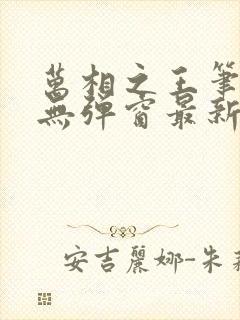 萬相之王筆
無彈窗最新
安吉麗娜-朱